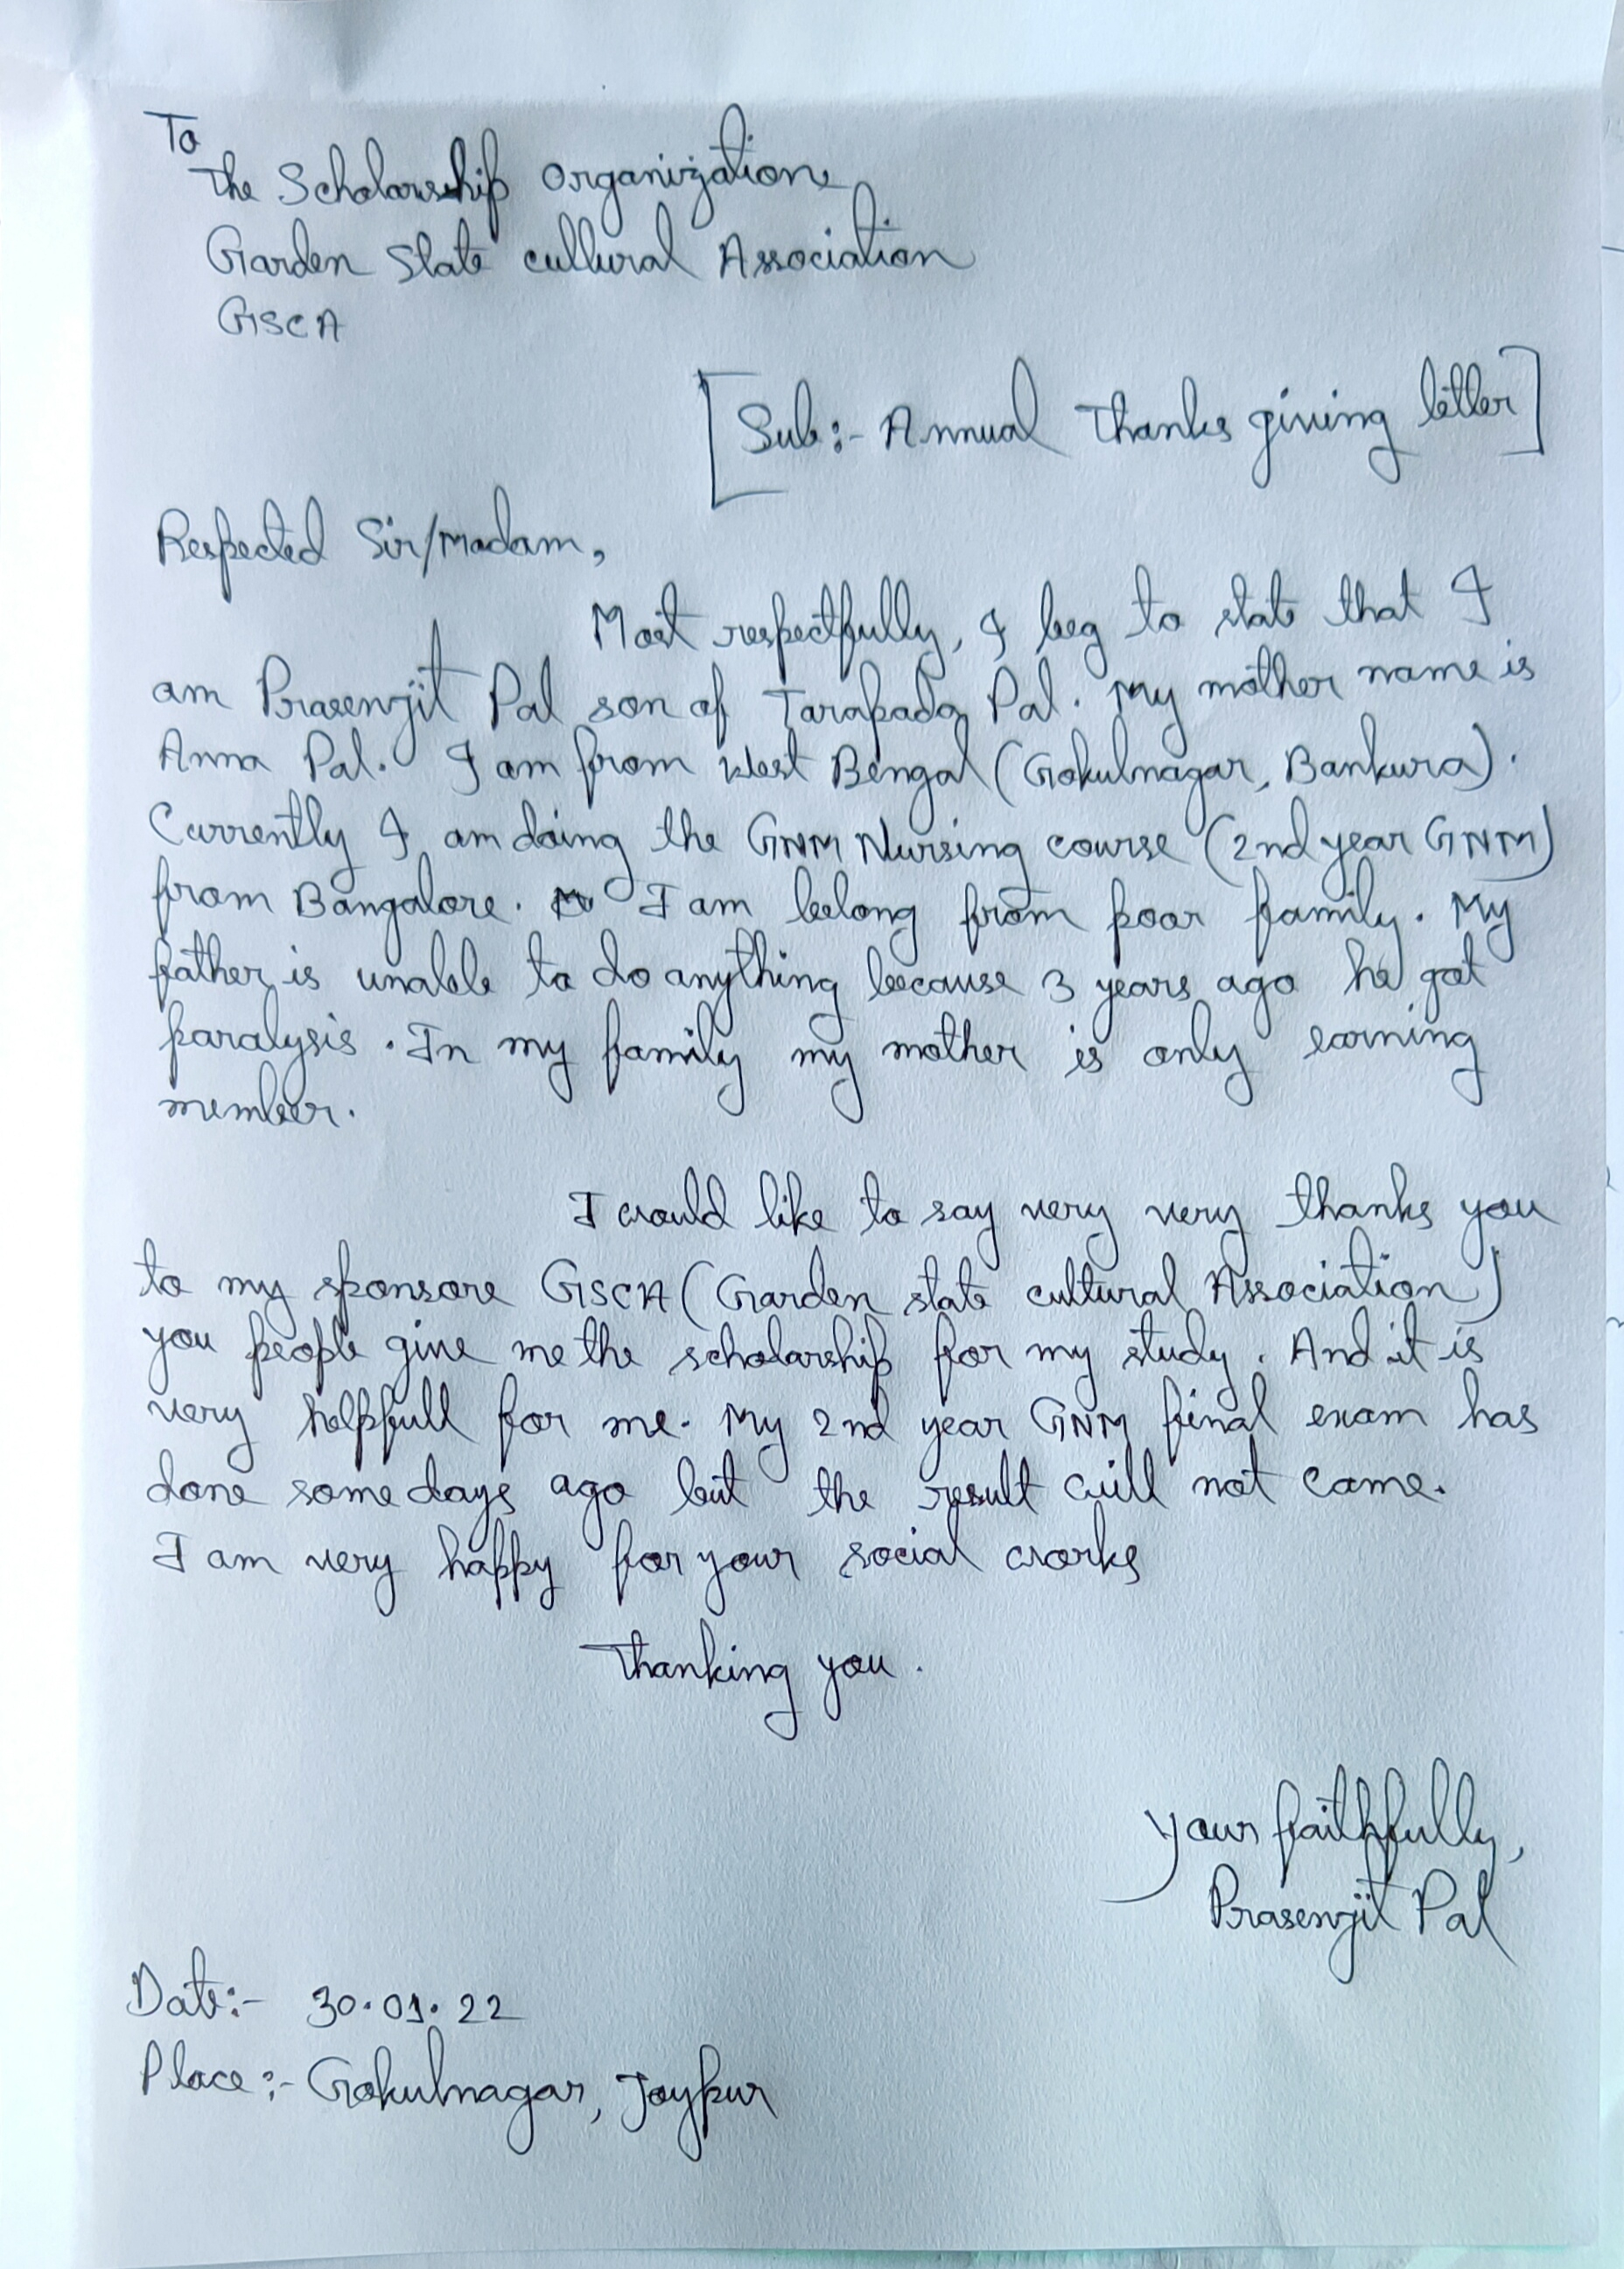 To
The Scholarship Organization
Garden State cultural Association
GSCA
[Sub:- Annual Thanks giving letter]
Respected Sir/Madam,
Most respectfully, I beg to state that I
am Prasenjit Pal son of Tarapada Pal. My mother name is
Anna Pal. I am from West Bengal (Gokulnagar, Bankura).
Currently I am doing the GNM Nursing course (2nd year GNM)
from Bangalore. I am belong from poor family. My
father is unable to do anything because 3 years ago he got
paralysis. In my family my mother is only earning
member.
I would like to say very very thanks you
to my sponsore GSCA (Garden state cultural Association)
you people give me the scholarship for my study. And it is
very helpfull for me. My 2nd year GNM final exam has
done some days ago but the result will not came.
I am very happy for your social works
Thanking you.
Your faithfully,
Prasenjit Pal
Date:- 30.01.22
Place:- Gokulnagar, Joypur